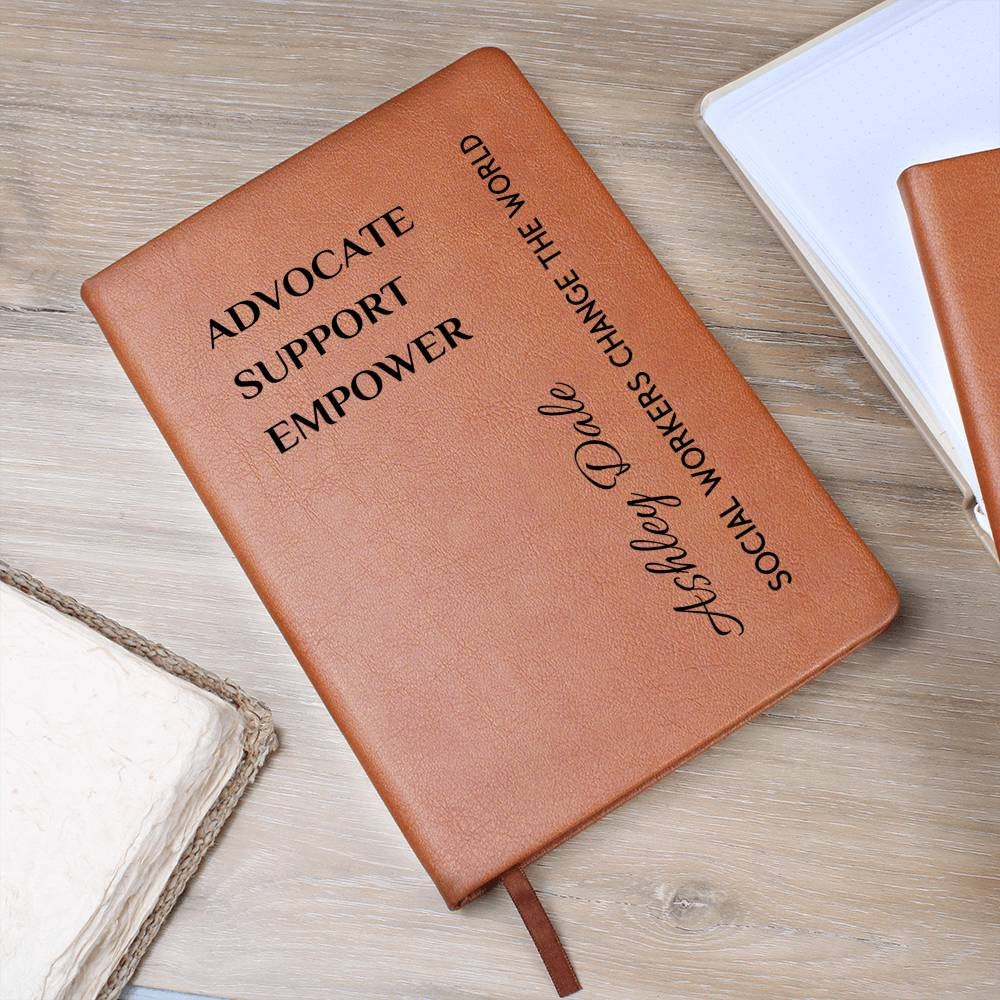 ADVOCATE
SUPPORT
EMPOWER
Ashley Dale
SOCIAL WORKERS CHANGE THE WORLD